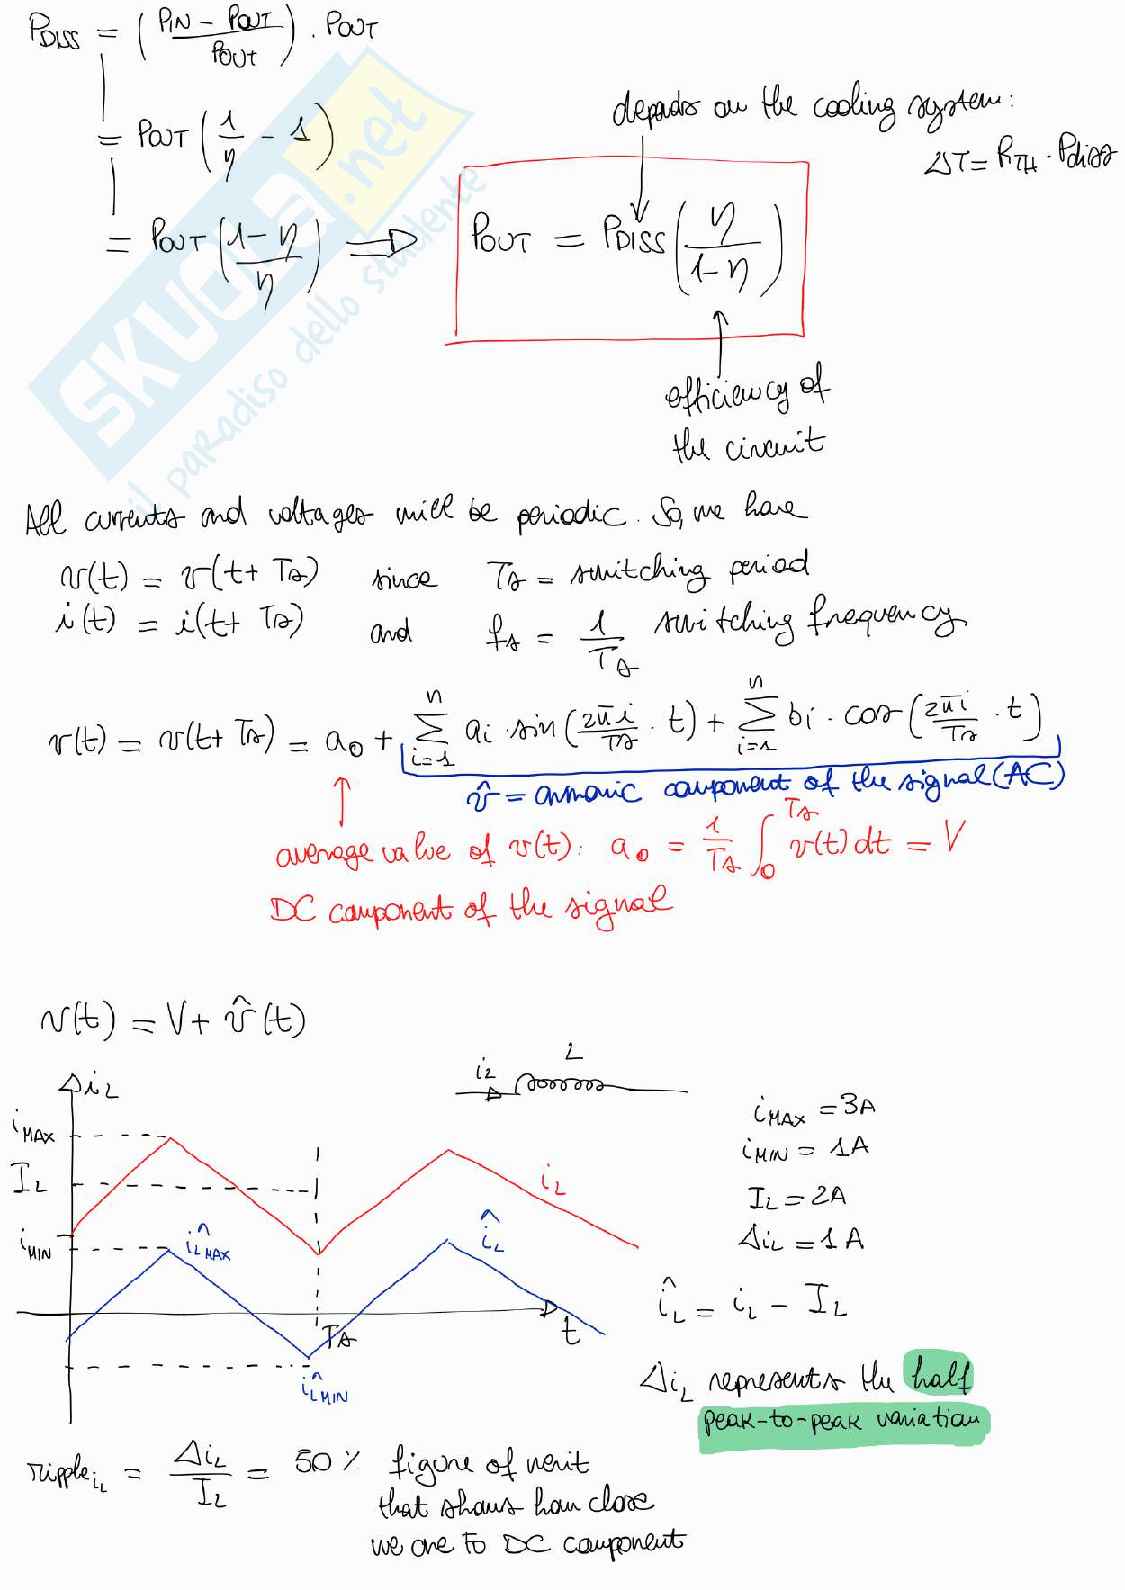 P_DISS = ((P_IN - P_OUT)/P_OUT) . P_OUT
= P_OUT (1/η - 1)
= P_OUT ((1-η)/η) ⇒ P_OUT = P_DISS (η/(1-η))
depends on the cooling system:
ΔT = R_TH · P_diss
efficiency of
the circuit
SKUOLA.net
il paradiso dello studente
All currents and voltages will be periodic. So, we have
v(t) = v(t + Ts) since Ts = switching period
i(t) = i(t + Ts) and fs = 1/Ts switching frequency
v(t) = v(t + Ts) = a0 + Σ_{i=1}^{n} ai · sin(2πi/Ts · t) + Σ_{i=1}^{n} bi · cos(2πi/Ts · t)
v̂ = armonic component of the signal (AC)
average value of v(t): a0 = 1/Ts ∫_0^Ts v(t) dt = V
DC component of the signal
v(t) = V + v̂(t)
iL
iL L
iMAX
IL
iMIN
îL MAX
iL
îL
Ts
t
îL MIN
iMAX = 3A
iMIN = 1A
IL = 2A
ΔiL = 1A
îL = iL - IL
ΔiL represents the half
peak-to-peak variation
ripple_iL = ΔiL/IL = 50% figure of merit
that shows how close
we are to DC component